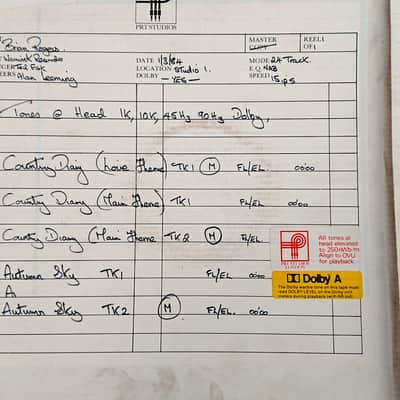 PRT STUDIOS
Brian Rogers
Warwick Records
MASTER
COPY
REEL 1
OF 1
DATE 1/3/84
LOCATION Studio 1.
DOLBY — YES —
MODE 24 Track.
E.Q. NAB
SPEED 15 i.p.s
Alan Leeming
Tones @ Head 1K, 10K, 45Hz 90Hz Dolby,
Country Diary (Love Theme) TK1 M FL/EL. 00'00
Country Diary (Main Theme) TK1 FL/EL 00'00
Country Diary (Main Theme TK2 M FL/EL.
Autumn Sky TK1 FL/EL 00'00
Autumn Sky TK2 M FL/EL. 00'00
PRT STUDIOS
LONDON
All tones at
head elevated
to 250nWb/m
Align to OVU
for playback
Dolby A
The Dolby warble tone on this tape must
read DOLBY LEVEL on the Dolby unit
meters during playback (with NR out)